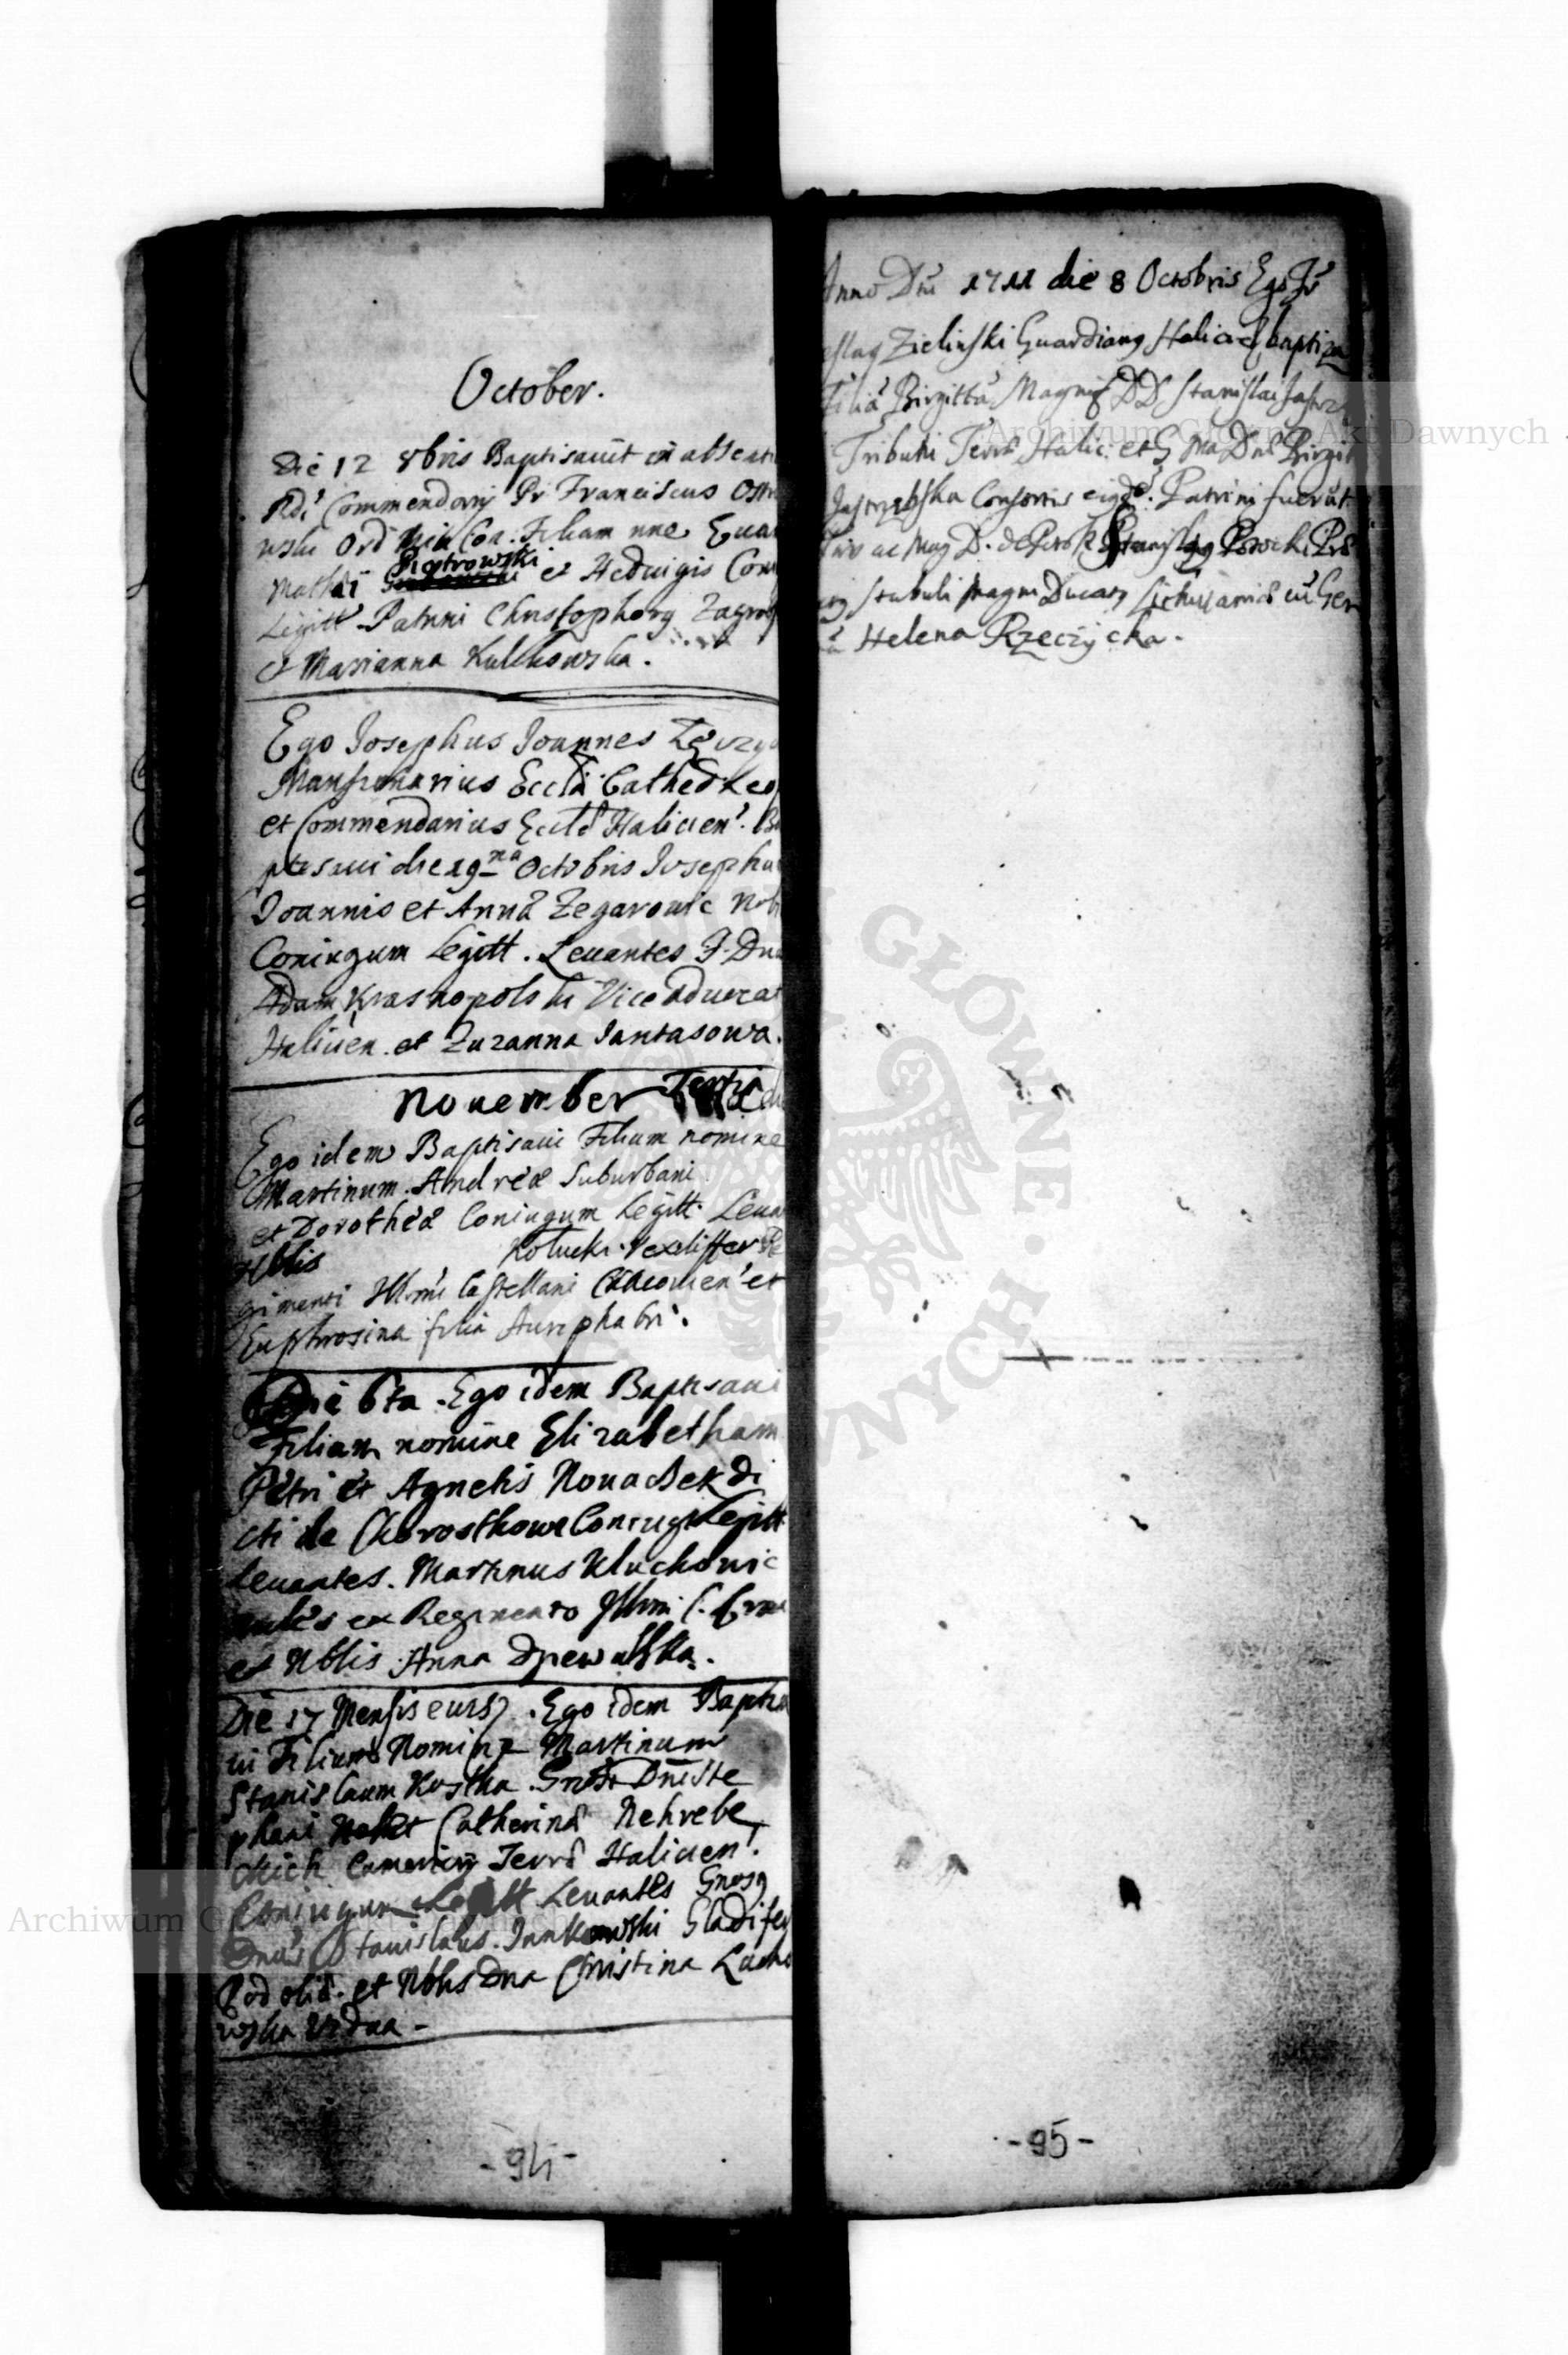 October.
Die 12 8bris Baptisauit in absenti
Rdi Commendarij Pr Franciscus Ostr
wski Ord Min Con. Filiam nne Euan
Mathei Piotrowski et Hedwigis Coni
Legitt. Patrini Christophorg Zagro
et Marianna Kulikowska.
Ego Josephus Joannes
Mansionarius Ecclae Cathed Leo
et Commendarius Eccle Halicien. Ba
ptisaui die 19na Octobris Josephu
Joannis et Annae Zegarowic Nob
Coniugum Legitt. Leuantes G. Dn
Adam Krasnopolski Vice Aduocat
Halicien. et Zuzanna Jantasowa.
Nouember Tertia di
Ego idem Baptisaui Filium nomine
Martinum. Andreae Suburbani
et Dorotheae Coniugum Legitt. Leua
Nblis Kotucki. Vexillifer Re
gimenti Illmi Castellani et
Euphrosina filia Aurifabri.
Die 6ta. Ego idem Baptisaui
Filiam nomine Elizabetham
Petri et Agnetis Nouadek di
cti de Chorostkow Coniug Legitt.
Leuantes. Martinus Kluckowic
miles ex Regimento Illmi C.
et Nblis Anna
Die 17 Mensis eursz. Ego idem Baptisa
ui Filium Nomine Martinum
Stanislaum Kostka. Gnosi Dni Ste
phani et Catherinae Nehrebe
ckich Terrae Halicien.
Coniugum Legitt Leuantes Gnosg
Dnus Stanislaus. Jankowski Gladifer
Podoliae. et Nblis Dna Christina Lacho
wska Vidua -
- 94 -
Anno Dni 1711 die 8 Octobris Ego Fr
eslag Zielinski Guardiang Haliciae baptiza
Filia Birgitta Magnif DD Stanislai Jastrz
Tribuni Terrae Halic. et G Ma Dna Birgit
Jastrzebska Consortis eigde. Patrini fuerut
ac Mag D. Stanislag Potocki
Stabuli Magni Ducatg Lithuaniae cu Gen
Helena Rzeczycka.
- 95 -
Archiwum Główne Akt Dawnych